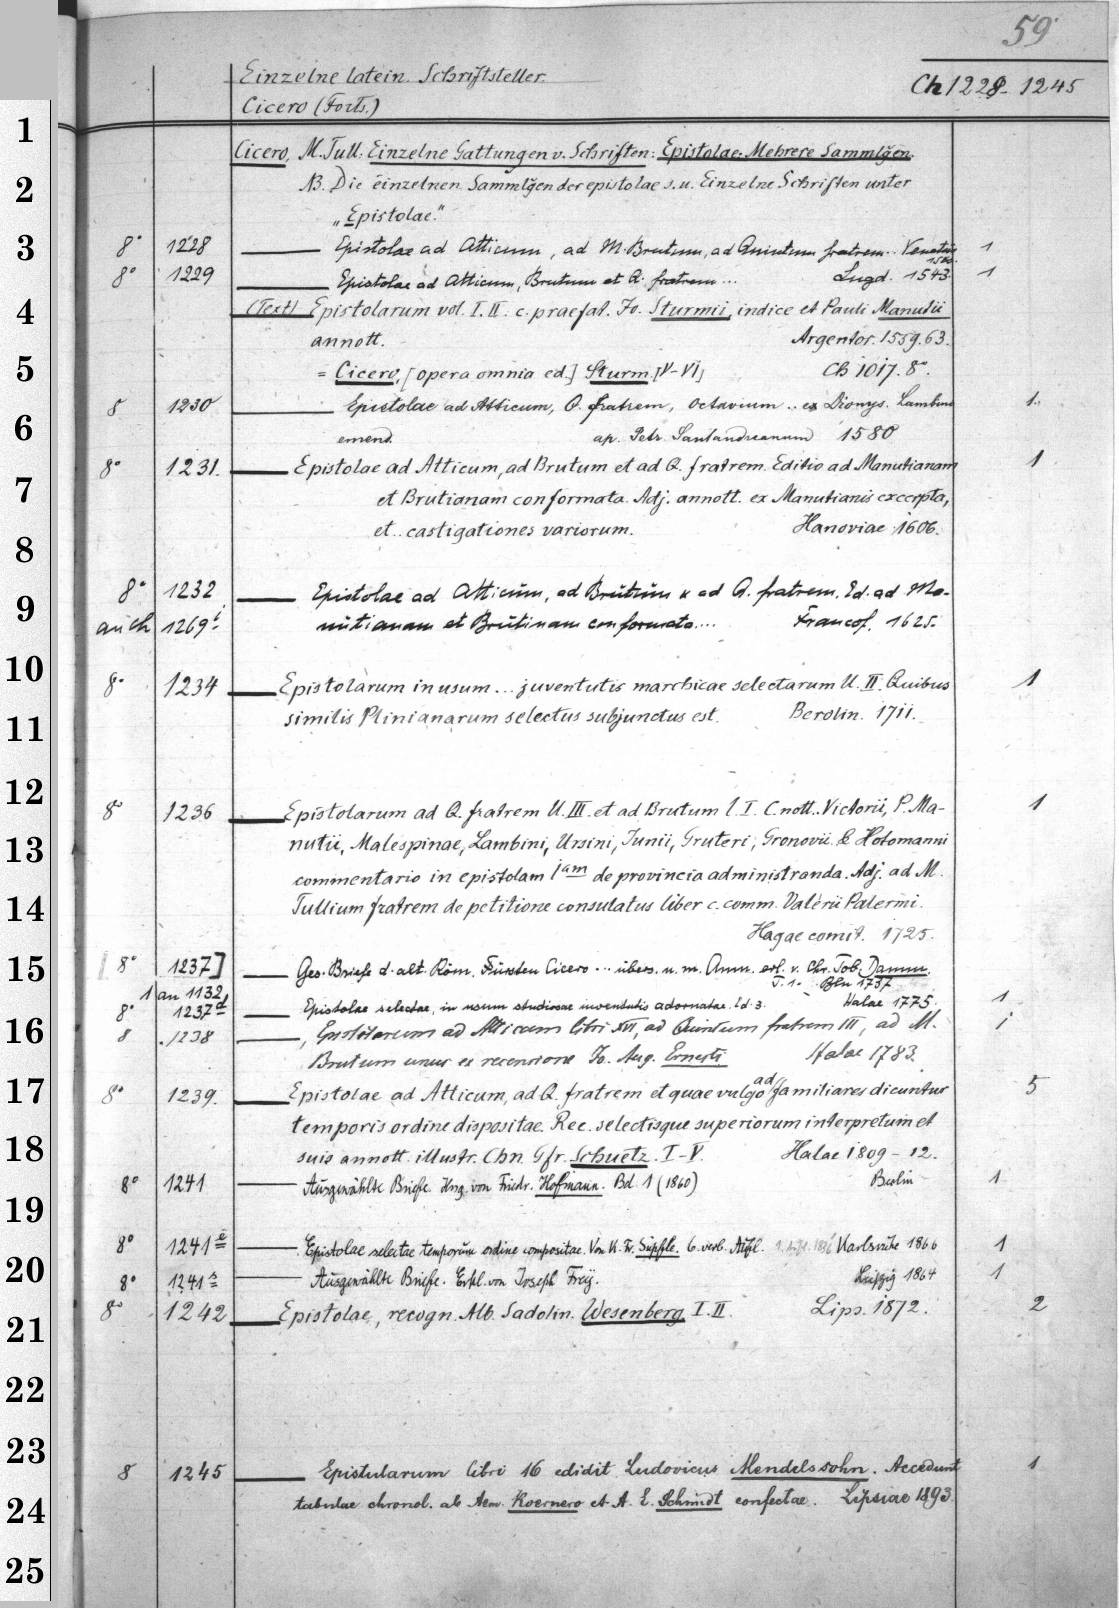 59
Einzelne latein. Schriftsteller.
Ch 1228-1245
Cicero (Forts.)
1
Cicero, M. Tull.: Einzelne Gattungen v. Schriften: Epistolae: Mehrere Sammlgen.
2 NB. Die einzelnen Sammlgen der epistolae s. u. Einzelne Schriften unter
„Epistolae."
3 8° 1228 Epistolae ad Atticum, ad M. Brutum, ad Quintum fratrem.. Venetiis 1
8° 1229 Epistolae ad Atticum, Brutum et Q. fratrem ... Lugd. 1543. 1
4 (Text) Epistolarum vol. I. II. c. praefat. Jo. Sturmii, indice et Pauli Manutii
annott. Argentor. 1559. 63.
5 = Cicero, [opera omnia ed.] Sturm. [V-VI] Ch 1017. 8°.
8 1230 Epistolae ad Atticum, Q. fratrem, Octavium .. ex Dionys. Lambini 1.
6 emend. ap. Petr. Santandreanum 1580
8° 1231. Epistolae ad Atticum, ad Brutum et ad Q. fratrem. Editio ad Manutianam 1
7 et Brutianam conformata. Adj. annott. ex Manutianis excerpta,
et .. castigationes variorum. Hanoviae 1606.
8
8° 1232 Epistolae ad Atticum, ad Brutum & ad Q. fratrem. Ed. ad Ma-
9 auch 1269i nutianam et Brutinam conformata ... Francof. 1625.
10 8° 1234 Epistolarum in usum ... juventutis marchicae selectarum ll. II. Quibus 1
11 similis Plinianarum selectus subjunctus est. Berolin. 1711.
12 8° 1236 Epistolarum ad Q. fratrem ll. III. et ad Brutum l. I. c. nott.. Victorii, P. Ma- 1
13 nutii, Malespinae, Lambini, Ursini, Junii, Gruteri, Gronovii. & Hotomanni
commentario in epistolam 1am de provincia administranda. Adj. ad M.
14 Tullium fratrem de petitione consulatus liber c. comm. Valerii Palermi.
Hagae comit. 1725.
15 [8° 1237] Ges. Briefe d. alt. Röm. Fürsten Cicero ... übers. u. m. Anm. erl. v. Chr. Tob. Damm.
1 an 1132, T. 1. Bln 1737
8° 1237d Epistolae selectae, in usum studiosae iuventutis adornatae. Ed. 3. Halae 1775. 1
16 8 1238 , Epistolarum ad Atticum libri XVI, ad Quintum fratrem III, ad M. 1
Brutum unus ex recensione Jo. Aug. Ernesti Halae 1783.
17 8° 1239. Epistolae ad Atticum, ad Q. fratrem et quae vulgo ad familiares dicuntur 5
temporis ordine dispositae. Rec. selectisque superiorum interpretum et
18 suis annott. illustr. Chn. Gfr. Schuetz. I-V. Halae 1809-12.
8° 1241 Ausgewählte Briefe. Hrsg. von Friedr. Hofmann. Bd. 1 (1860) Berlin 1
19
8° 1241e Epistolae selectae temporum ordine compositae. Von K. Fr. Süpfle. 6. verb. Aufl. Karlsruhe 1866 1
20 8° 1241s Ausgewählte Briefe. Erkl. von Joseph Frey. Leipzig 1864 1
8° 1242 Epistolae, recogn. Alb. Sadolin. Wesenberg. I. II. Lips. 1872. 2
21
22
23
8 1245 Epistularum libri 16 edidit Ludovicus Mendelssohn. Accedunt 1
24 tabulae chronol. ab Aem. Koernero et A. E. Schmidt confectae. Lipsiae 1893.
25